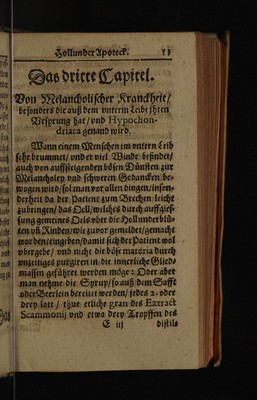 Hollunder Apoteck. 53
Das dritte Capitel.
Von Melancholischer Kranckheit/
besonders die auß dem vntern Leib ihren
Vrsprung hat/ vnd Hypochon-
driaca genand wird.
Wann einem Menschen im vntern Leib
sehr brummet/ vnd er viel Winde befindet/
auch von auffsteigenden bösen Dünsten zur
Melancholey vnd schweren Gedancken be-
wogen wird/ sol man vor allen dingen/ inson-
derheit da der Patient zum Brechen leicht
zubringen/ das Oell/ welches durch auffgies-
sung gemeines Oels vber die Hollunderblü-
ten vn̄ Rinden/ wie zuvor gemeldet/ gemacht
worden/ eingeben/ damit sich der Patient wol
vbergebe/ vnd nicht die böse materia durch
vnzeitiges purgiren in die innerliche Glied-
massen geführet werden möge: Oder aber
man nehme die Syrup/ so auß dem Safft
oder Beerlein bereitet werden/ jedes 2. oder
drey lott/ thue etliche gran des Extract
Scammonij vnd etwa drey Tropffen des
E iij distile